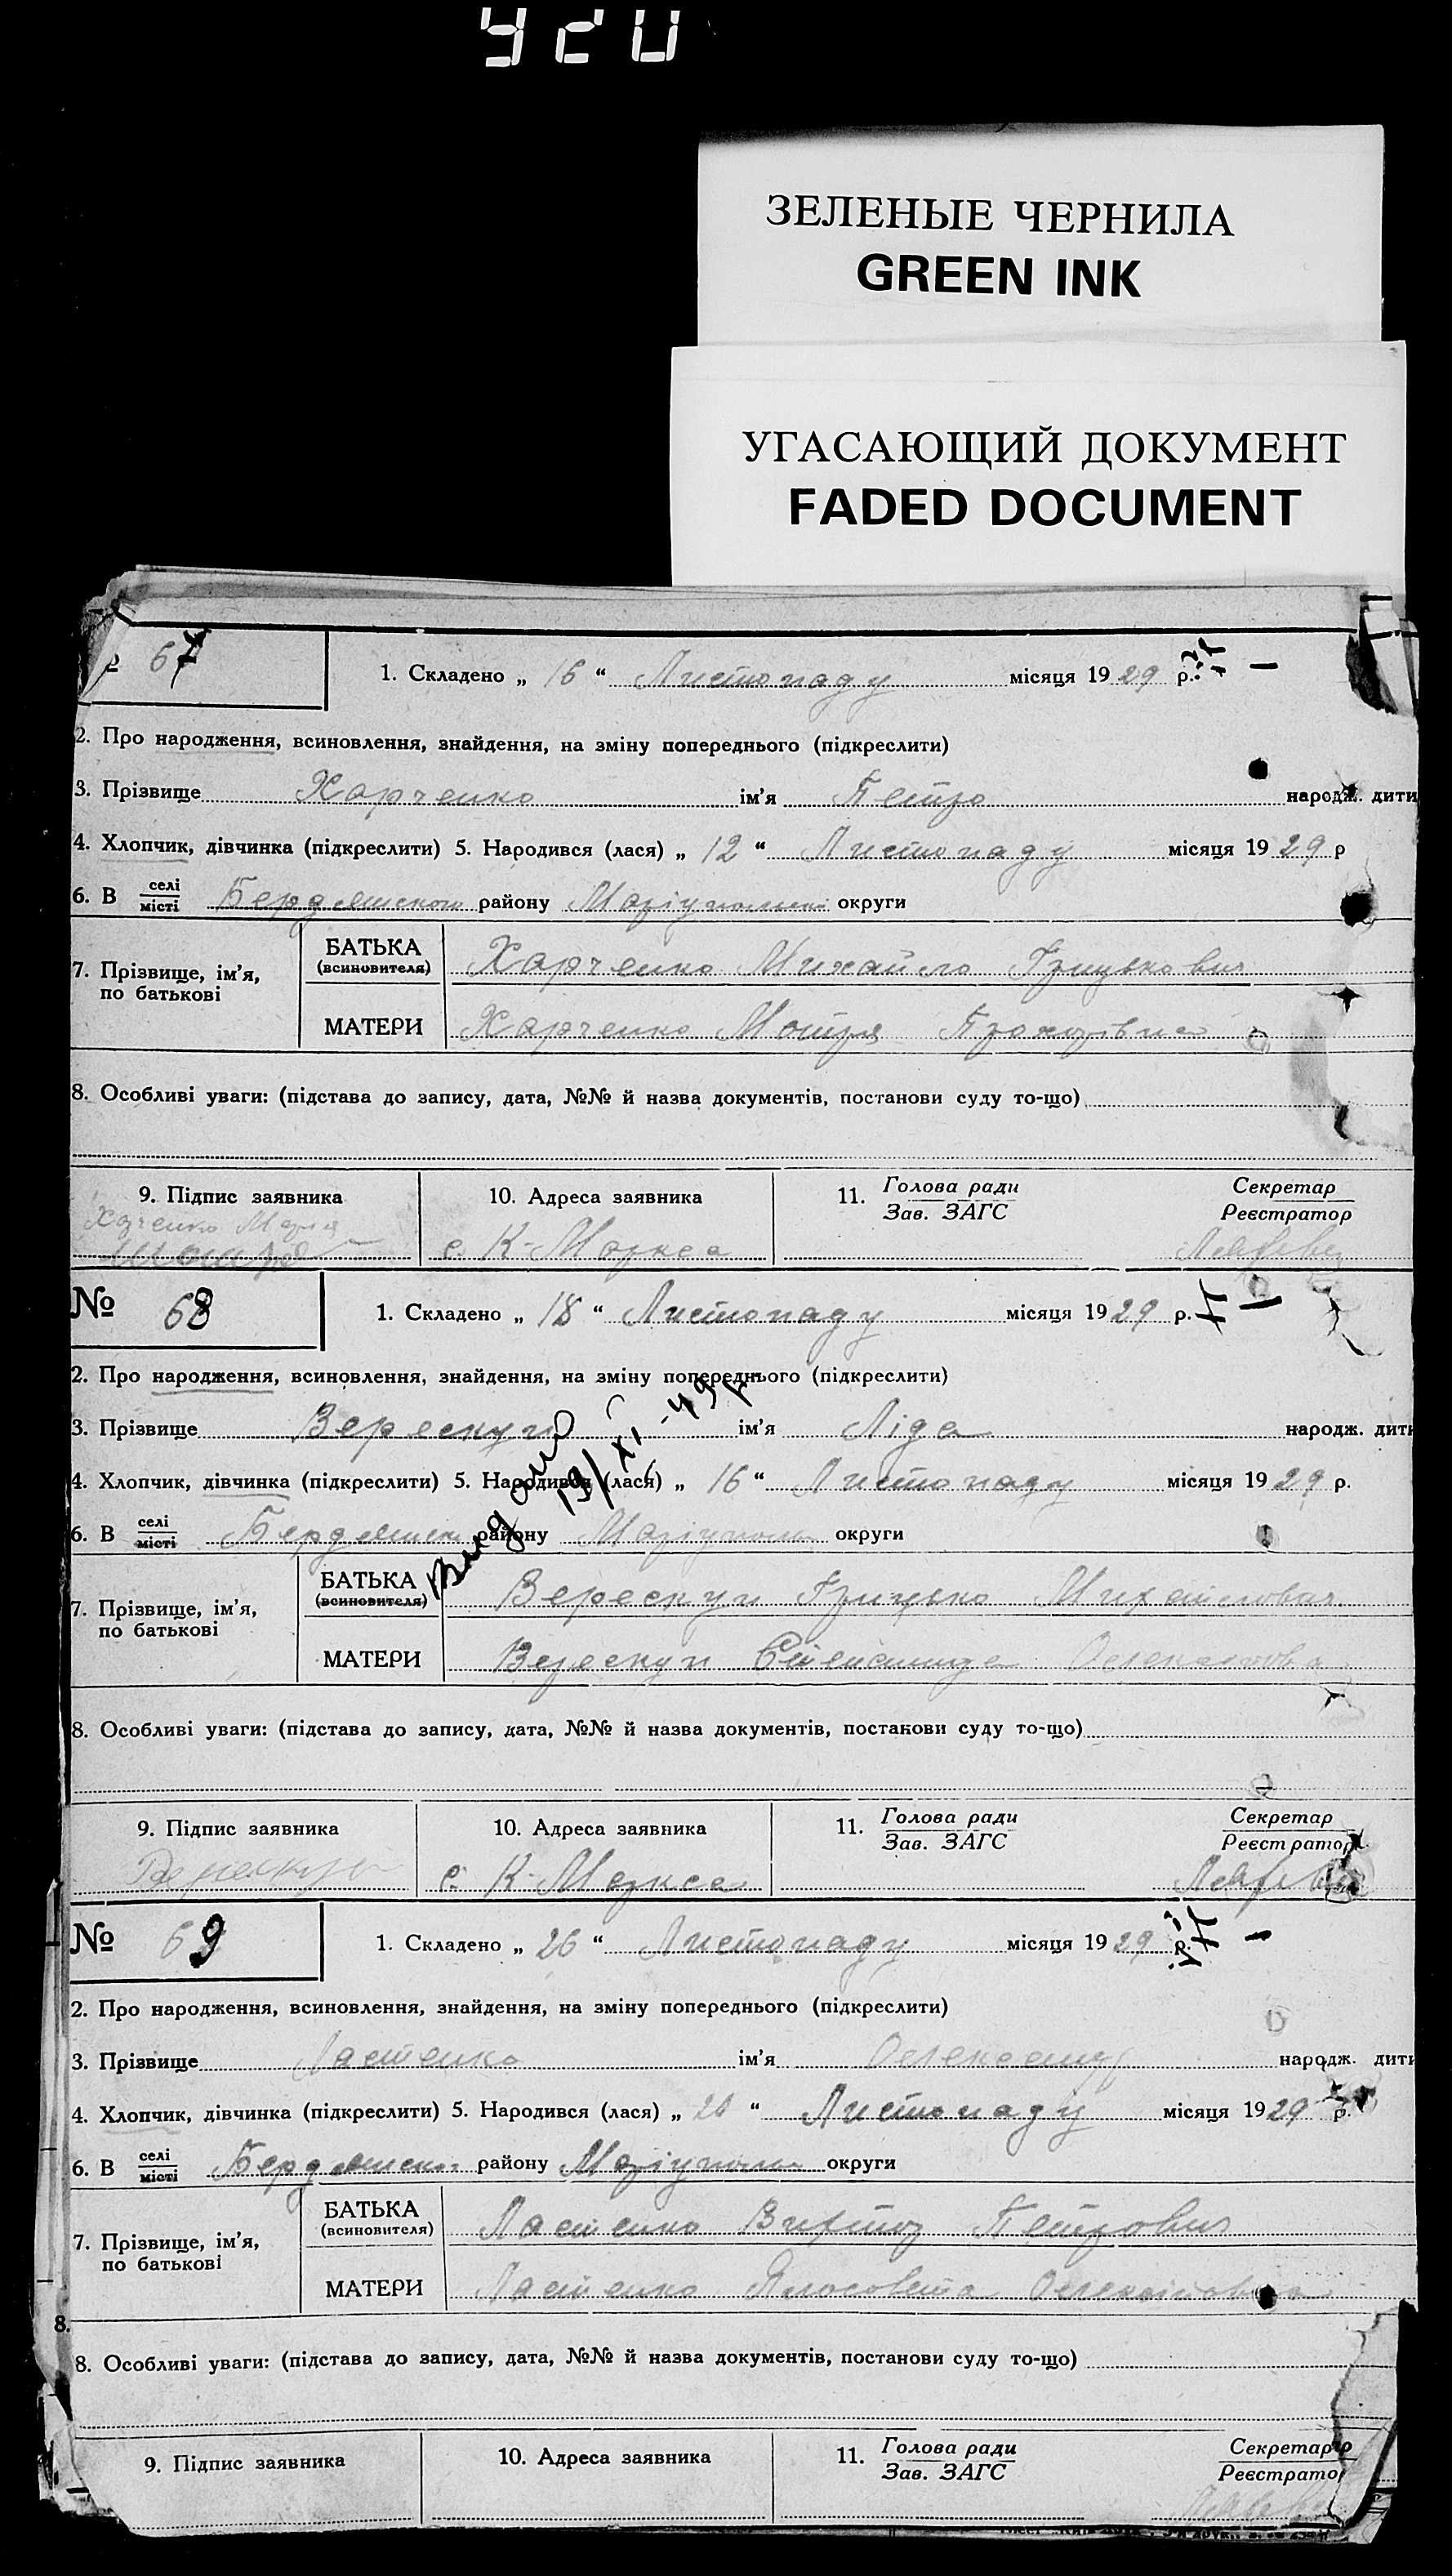 ЗЕЛЕНЫЕ ЧЕРНИЛА
GREEN INK
УГАСАЮЩИЙ ДОКУМЕНТ
FADED DOCUMENT
67
1. Складено „ 16 “ Листопаду місяця 1929 р.
2. Про народження, всиновлення, знайдення, на зміну попереднього (підкреслити)
3. Прізвище Харченко ім'я Петро народж. дити
4. Хлопчик, дівчинка (підкреслити) 5. Народився (лася) „ 12 “ Листопаду місяця 1929 р
6. В селі місті Бердянськом району Маріупольскі округи
7. Прізвище, ім'я, по батькові
БАТЬКА (всиновителя) Харченко Михайло Грицькович
МАТЕРИ Харченко Мотря Прохорівна
8. Особливі уваги: (підстава до запису, дата, №№ й назва документів, постанови суду то-що)
9. Підпис заявника 10. Адреса заявника 11. Голова ради Зав. ЗАГС Секретар Реєстратор
с. К-Маркса
№ 68
1. Складено „ 18 “ Листопаду місяця 1929 р.
2. Про народження, всиновлення, знайдення, на зміну попереднього (підкреслити)
3. Прізвище Верескун ім'я Ліда народж. дити
4. Хлопчик, дівчинка (підкреслити) 5. Народився (лася) „ 16 “ Листопаду місяця 1929 р.
6. В селі місті Бердянськ району Маріупольс округи
7. Прізвище, ім'я, по батькові
БАТЬКА (всиновителя) Верескун Грицько Михайлович
МАТЕРИ Верескун
8. Особливі уваги: (підстава до запису, дата, №№ й назва документів, постанови суду то-що)
9. Підпис заявника 10. Адреса заявника 11. Голова ради Зав. ЗАГС Секретар Реєстратор
Верескун с. К-Маркса
№ 69
1. Складено „ 26 “ Листопаду місяця 1929 р.
2. Про народження, всиновлення, знайдення, на зміну попереднього (підкреслити)
3. Прізвище ім'я народж. дити
4. Хлопчик, дівчинка (підкреслити) 5. Народився (лася) „ “ Листопаду місяця 1929 р.
6. В селі місті Бердянськ району Маріуполь округи
7. Прізвище, ім'я, по батькові
БАТЬКА (всиновителя) Петрович
МАТЕРИ
8.
8. Особливі уваги: (підстава до запису, дата, №№ й назва документів, постанови суду то-що)
9. Підпис заявника 10. Адреса заявника 11. Голова ради Зав. ЗАГС Секретар Реєстратор